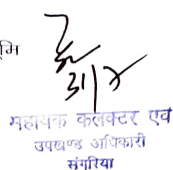 मि
सहायक कलक्टर एवं
उपखण्ड अधिकारी
संगरिया